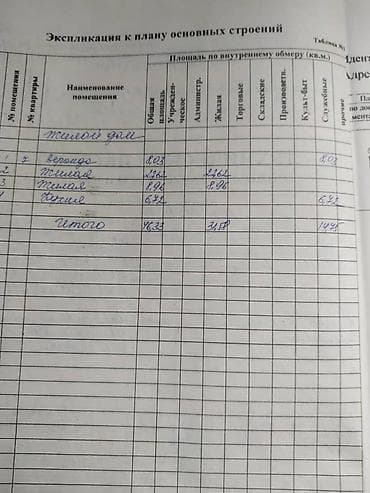 Экспликация к плану основных строений
Таблица №1
№ помещения
№ квартиры
Наименование помещения
Площадь по внутреннему обмеру (кв.м.)
Общая площадь
Учрежденческое
Администр.
Жилая
Торговые
Складские
Произвоотв.
Культ-быт
Служебные
прочие
Жилой дом
1 веранда 8,03 8,03
2 Жилая 22,62 22,62
3 Жилая 8,96 8,96
4 Кухня 6,72 6,72
Итого 46,33 31,58 14,75